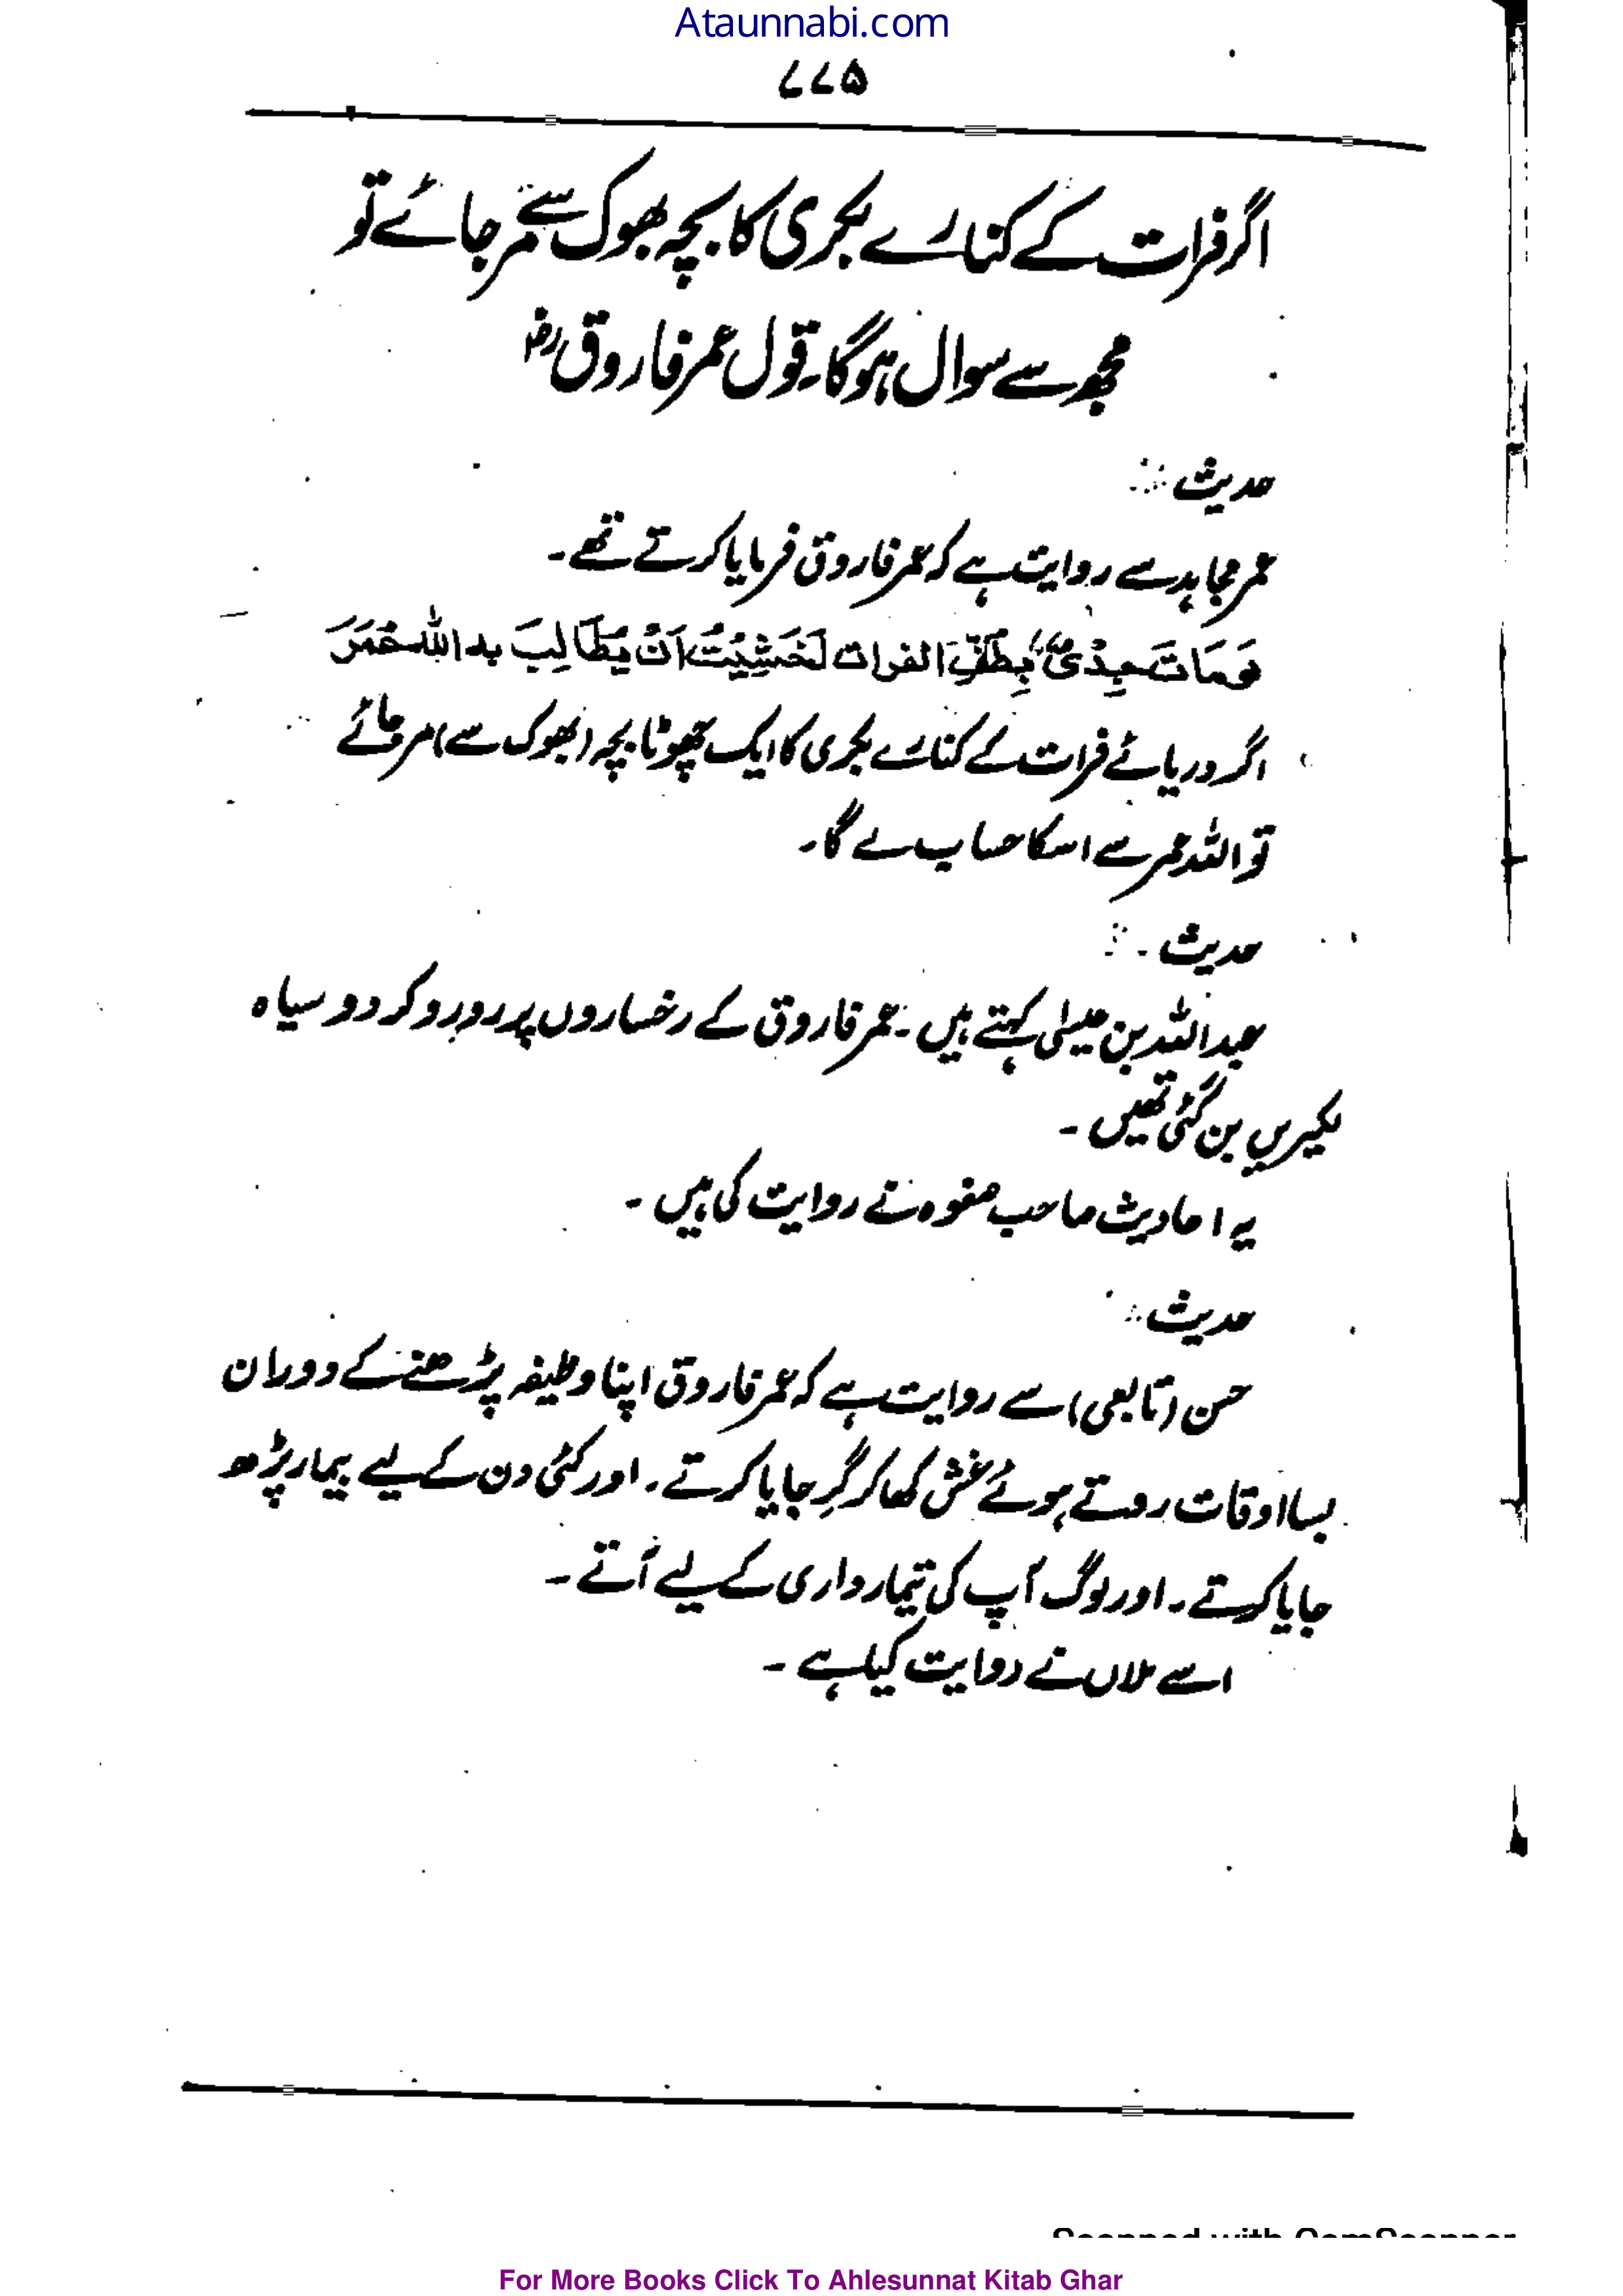 Ataunnabi.com
۷۷۵
اگر فرات کے کنارے بکری کا بچہ بھوک سے مر جائے تو
مجھ سے سوال ہوگا۔ قول عمر فاروق رض
حدیث :
عمر مجاہد سے روایت ہے کہ عمر فاروق فرمایا کرتے تھے۔
وَمَاتَ جِدْیٌ بِطَفِّ الفرات لَخَشِیْتُ اَنْ یُطَالِبَ بہ اللہ عُمَرَ
اگر دریائے فرات کے کنارے بکری کا ایک چھوٹا بچہ (بھوک سے) مر جائے
تو اللہ عمر سے اسکا حساب لے گا۔
حدیث :
عبداللہ بن عیسٰی کہتے ہیں۔ عمر فاروق کے رخساروں پر رو رو کر دو سیاہ
لکیریں بن گئی تھیں۔
یہ احادیث صاحب صفوہ نے روایت کی ہیں۔
حدیث :
حسن (تابعی) سے روایت ہے کہ عمر فاروق اپنا وظیفہ پڑھنے کے دوران
بسا اوقات روتے ہوئے غش کھا کر گِر جایا کرتے۔ اور کئی دن کے لیے بیمار پڑھ
جایا کرتے۔ اور لوگ آپ کی تیمارداری کے لیے آتے۔
اسے ملاں نے روایت کیا ہے۔
Scanned with CamScanner
For More Books Click To Ahlesunnat Kitab Ghar